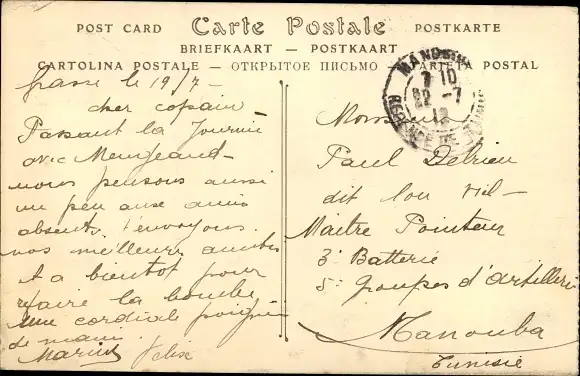 POST CARD Carte Postale POSTKARTE
BRIEFKAART — POSTKAART
CARTOLINA POSTALE — ОТКРЫТОЕ ПИСЬМО — CARTETA POSTAL
Grasse le 19/7 -
cher copain
Passant la Journée
avec
nous pensons aussi
un peu aux amis
absents. t'envoyons
nos meilleurs amitiés
et a bientot pour
refaire la bombe
Une cordiale poignée
de main
Marius Felix
MANOUBA
7 10
22 -7
12
REGENCE DE TUNIS
Monsieur
Paul Delrieu
dit lou viel -
Maitre Pointeur
3e Batterie
5e Groupes d'Artillerie
Manouba
Tunisie